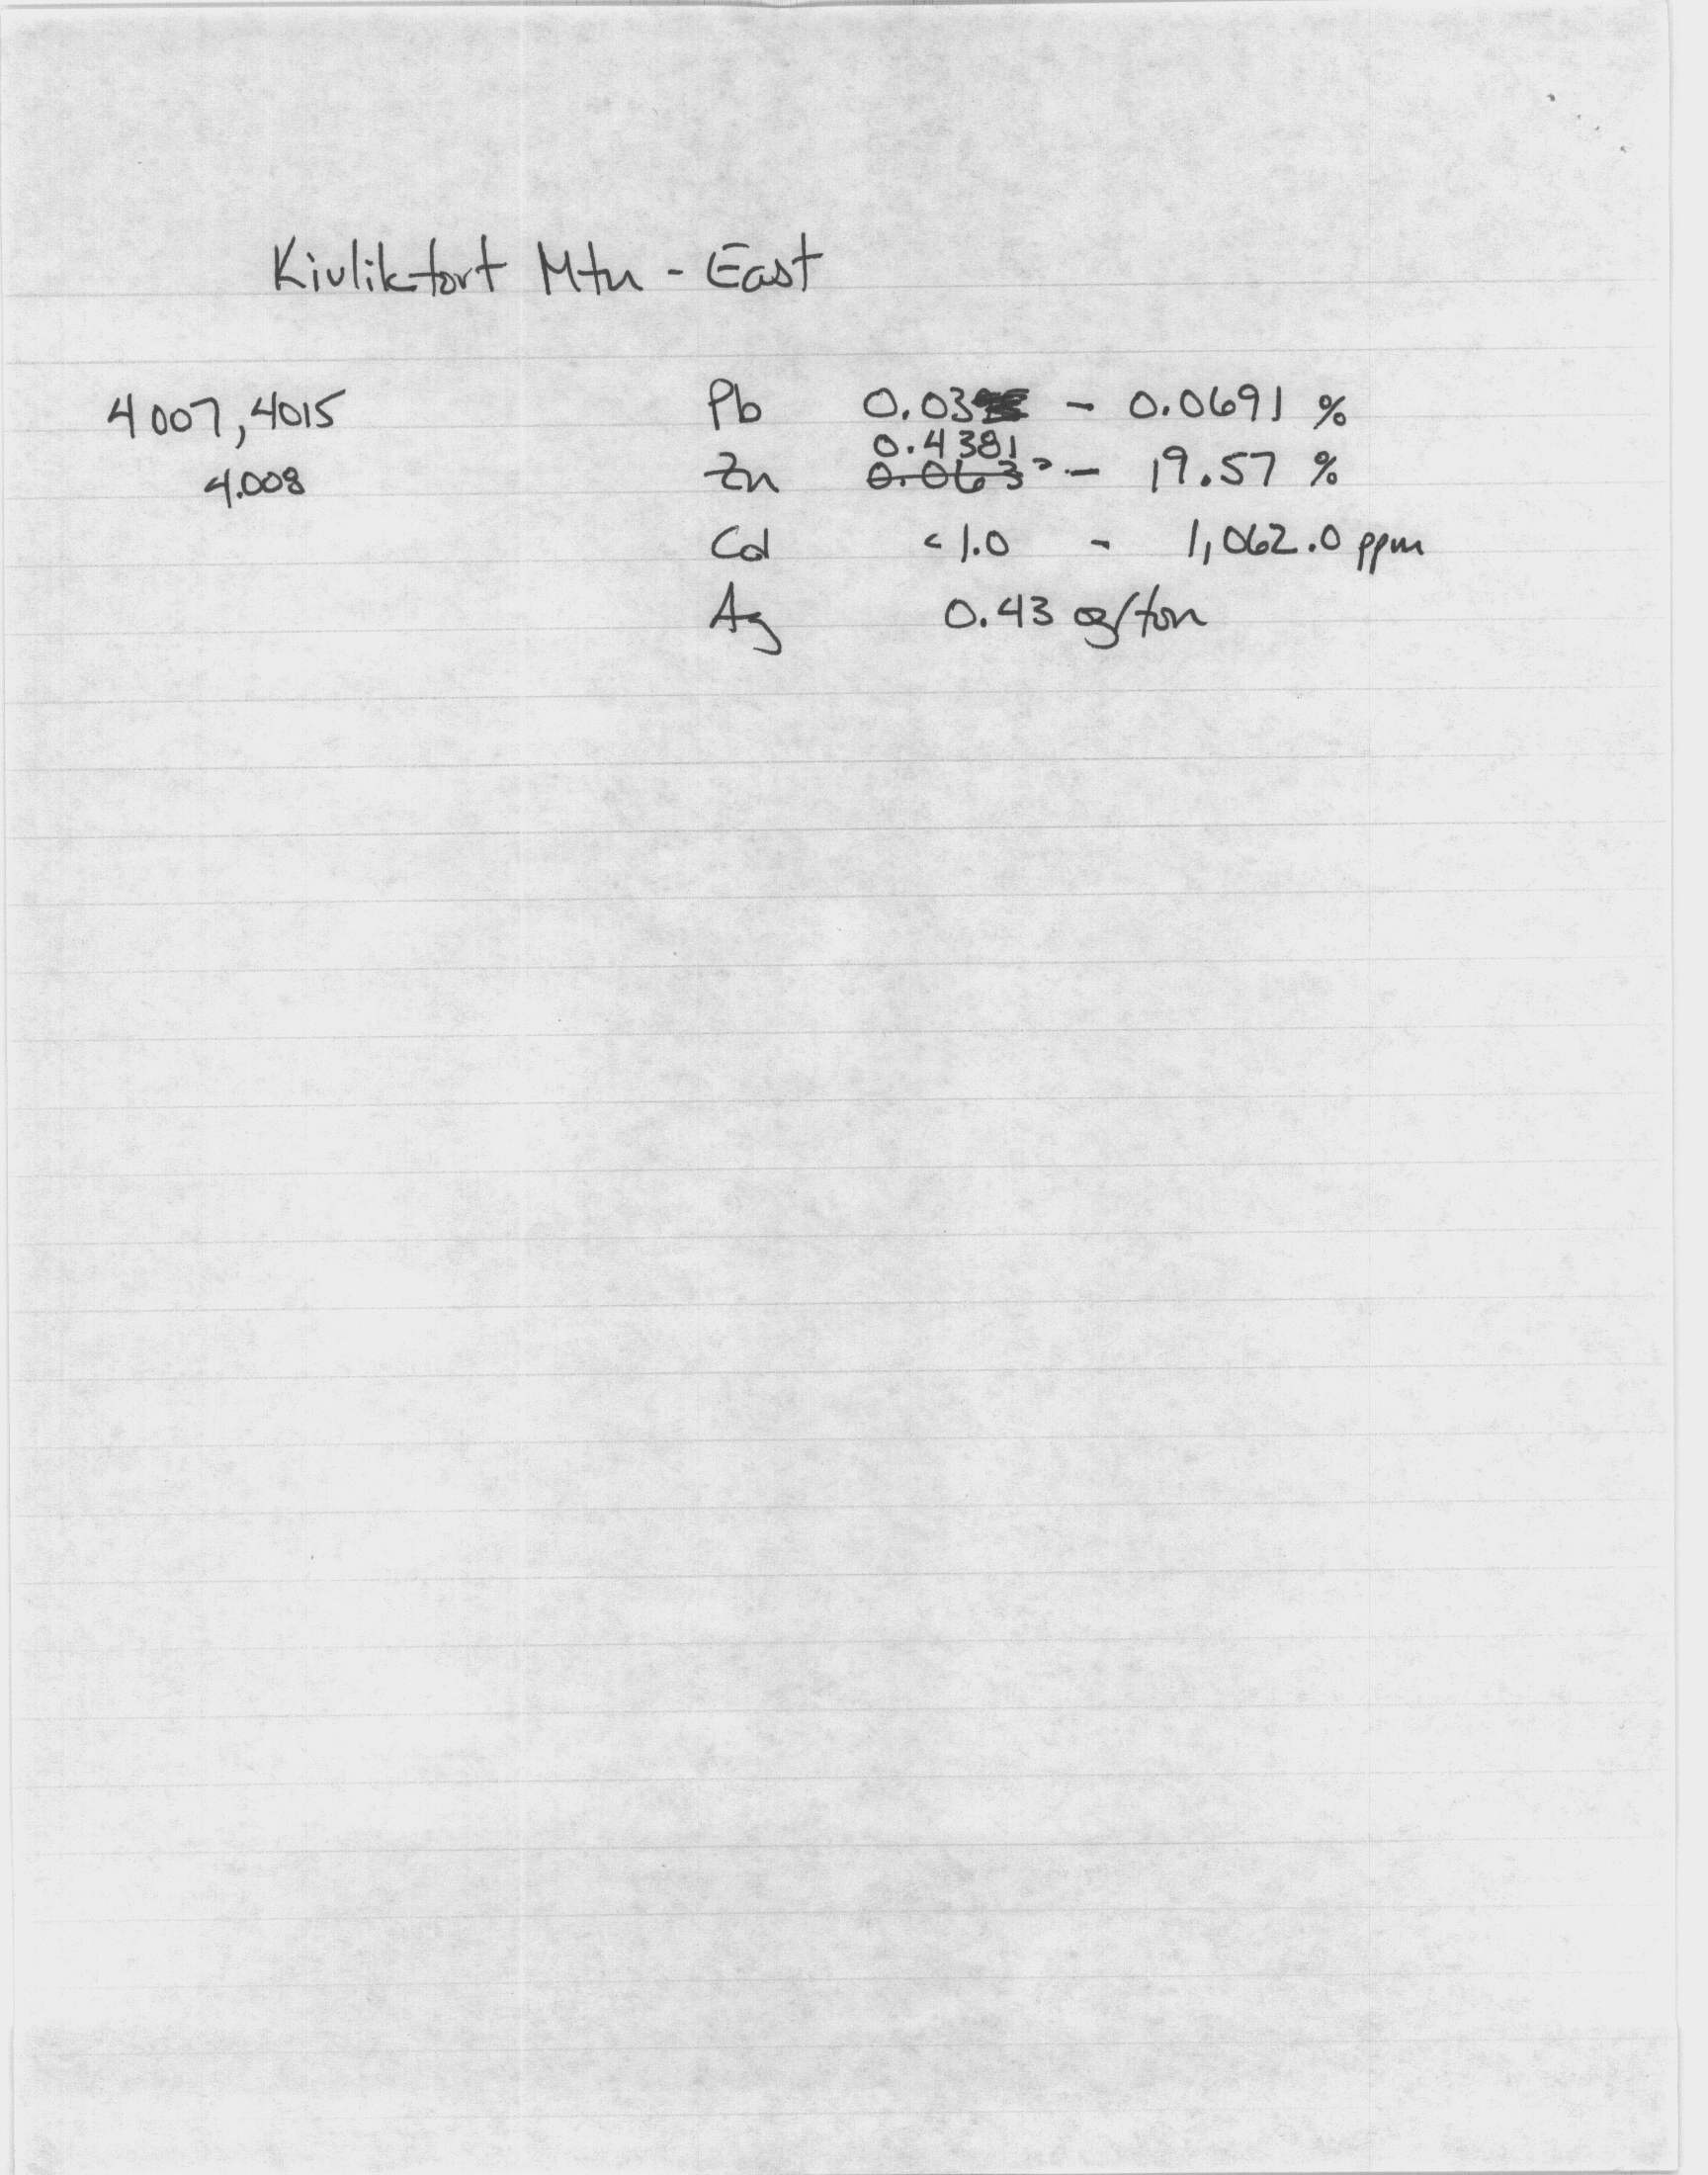 Kivliktort Mtn - East
4007, 4015 Pb 0.03 - 0.0691 %
0.4381
4.008 Zn 0.063 - 19.57 %
Cd <1.0 - 1,062.0 ppm
Ag 0.43 oz/ton